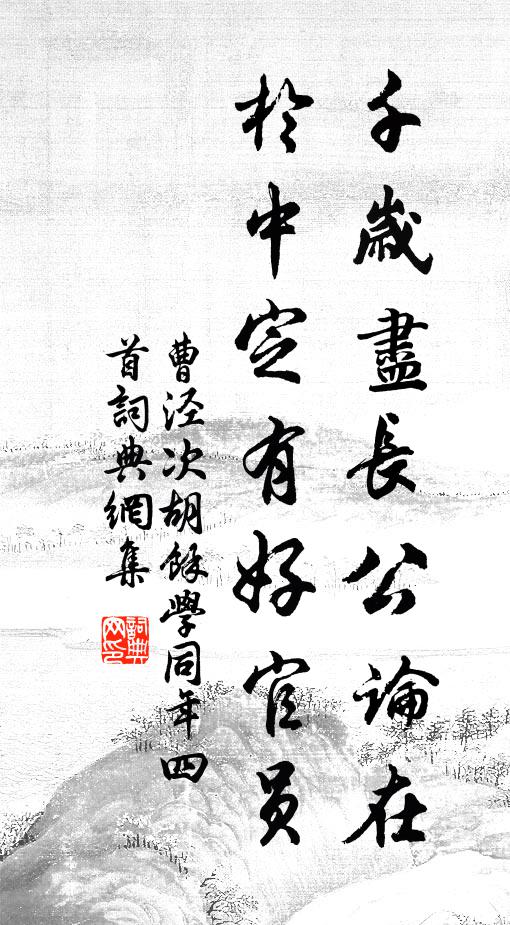 千歲盡長公論在
於中定有好官員
曹涇次胡餘學同年四
首詞典網集
詞典
网印